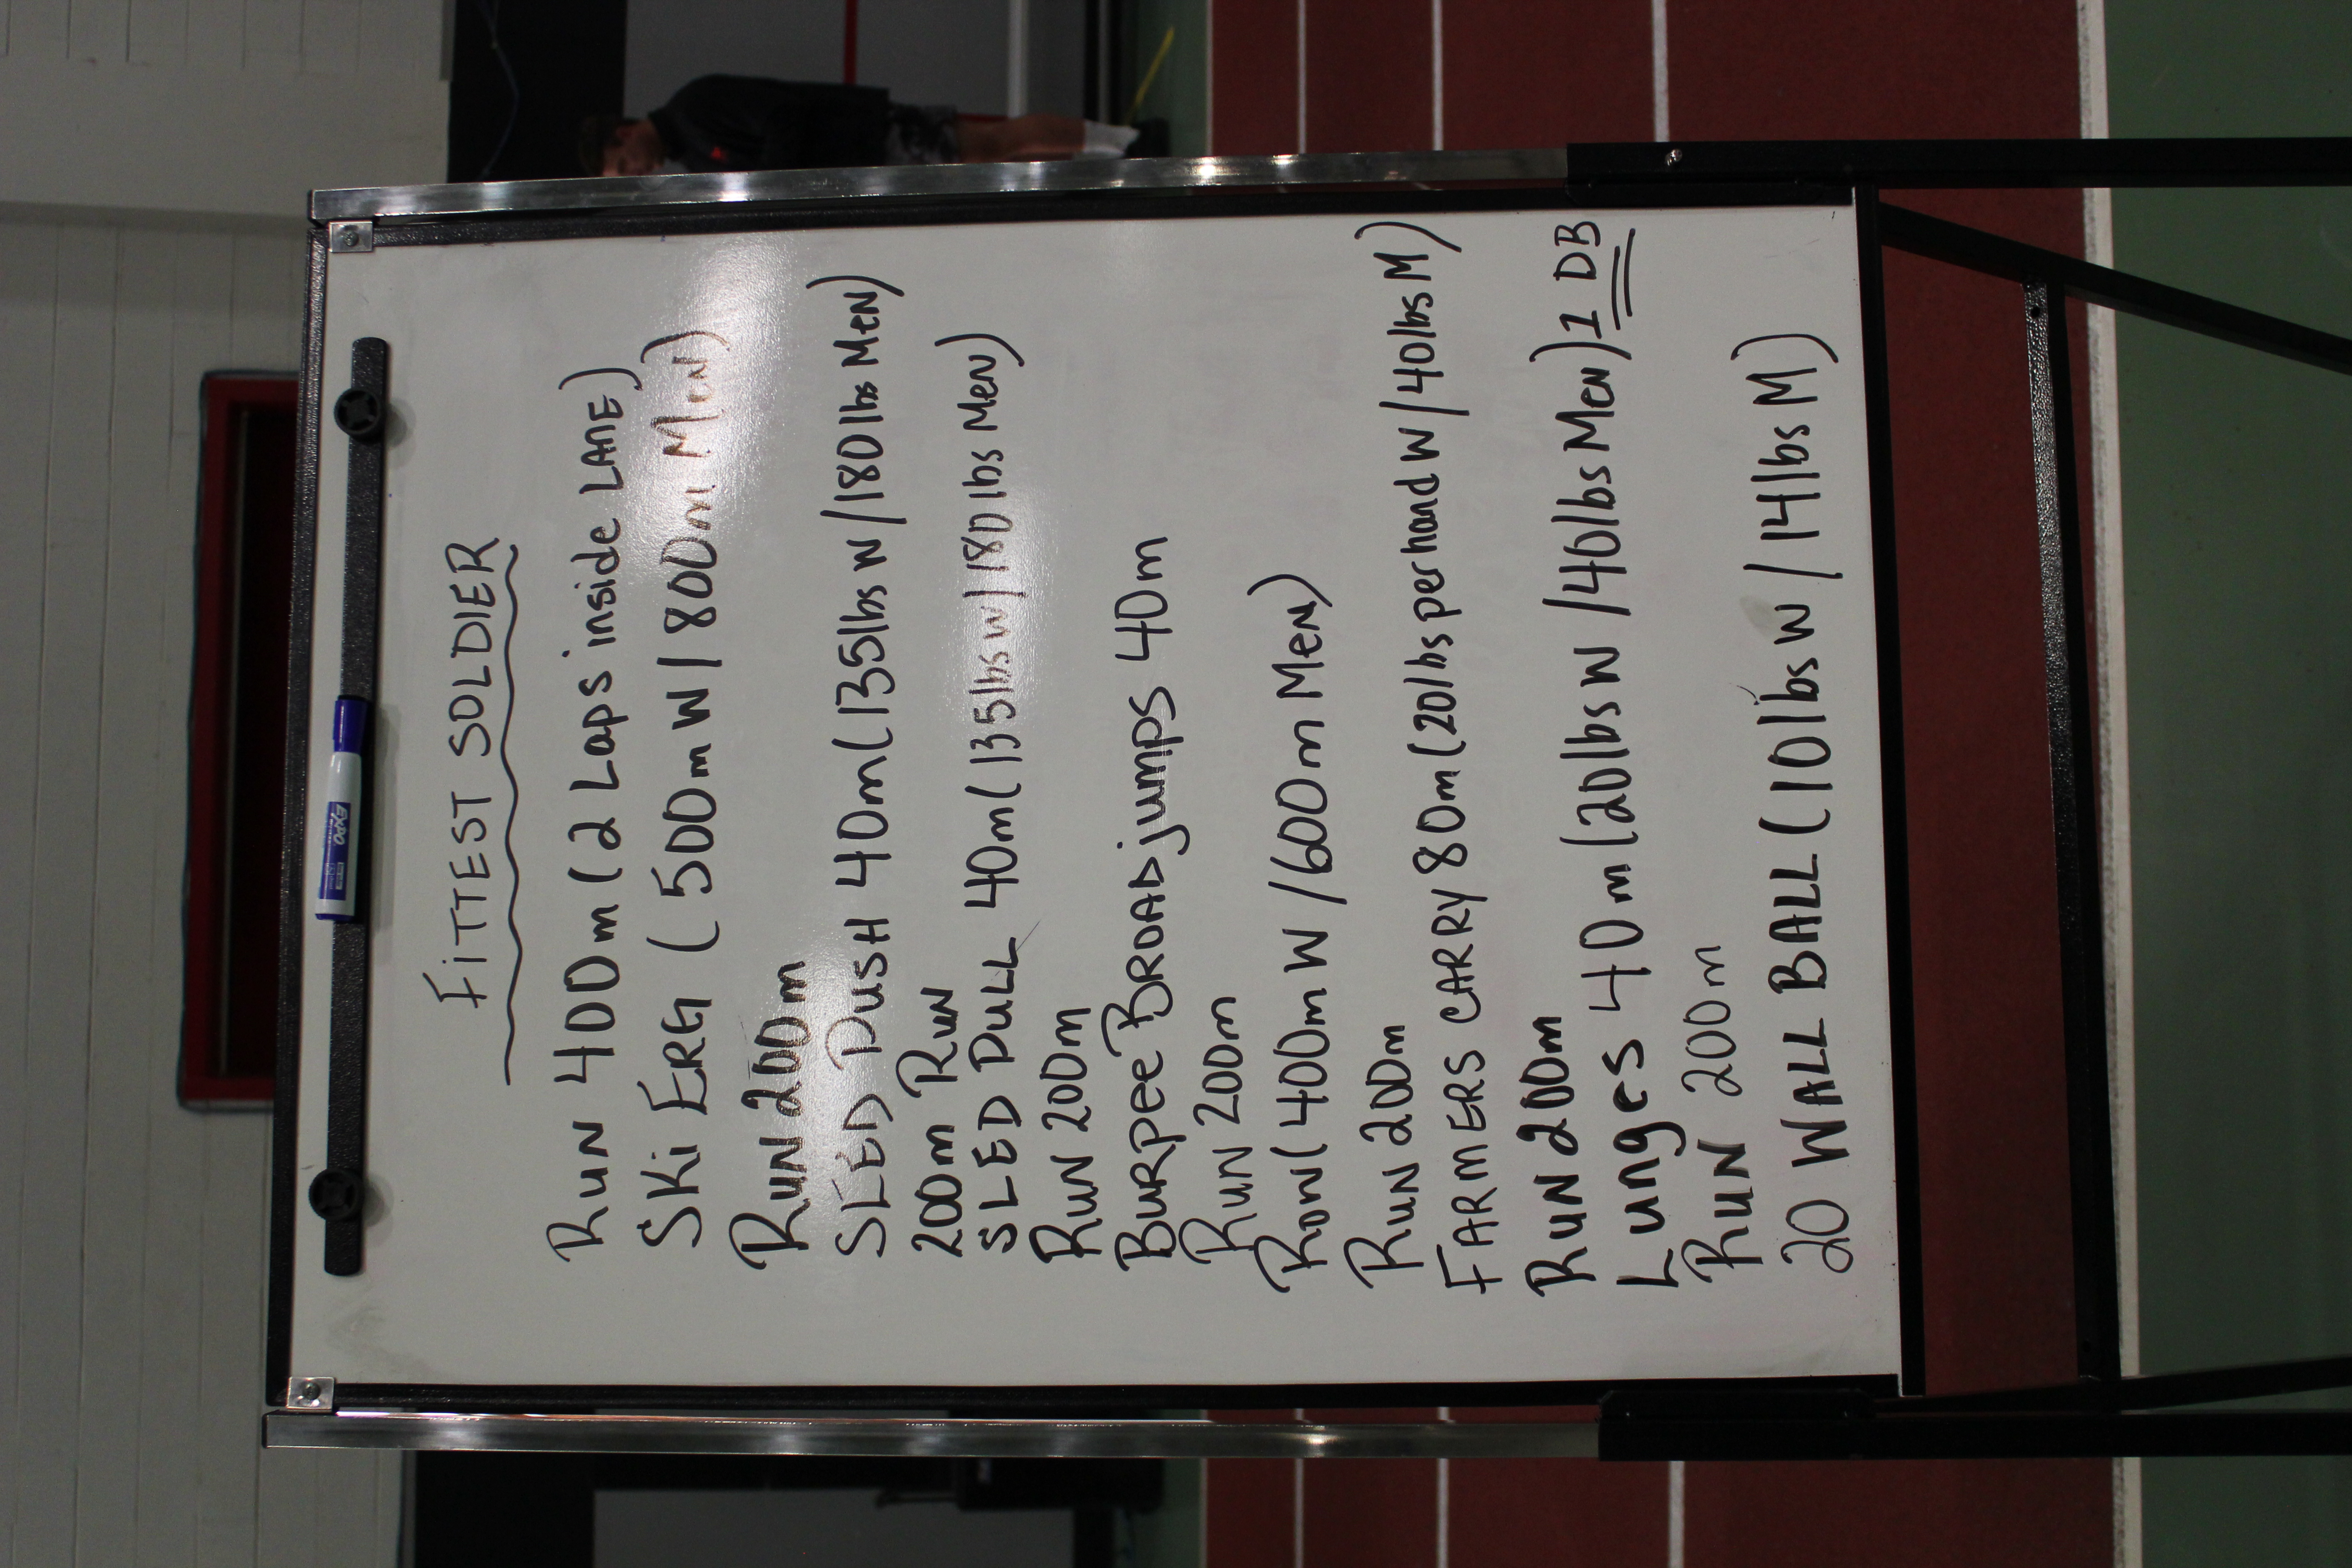 FITTEST SOLDIER
RUN 400m (2 Laps inside LANE)
SKi ERG (500m W / 800m Men)
RUN 200m
SLED PUSH 40m (135lbs W / 180lbs Men)
200m RUN
SLED PULL 40m (135lbs W / 180lbs Men)
RUN 200m
BURPEE BROAD jumps 40m
RUN 200m
ROW (400m W / 600m MEN)
RUN 200m
FARMERS CARRY 80m (20lbs per hand W / 40lbs M)
RUN 200m
Lunges 40m (20lbs W / 40lbs Men) 1 DB
RUN 200m
20 WALL BALL (10lbs W / 14lbs M)
EXPO